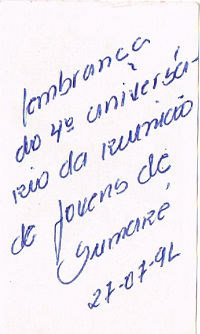 lembrança
do 4º aniversá-
rio da reunião
de Jovens de
Sumaré
27-07-92